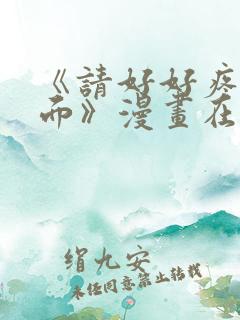 《請好好疼
而》漫畫在
绢九安
未任同意禁止转载